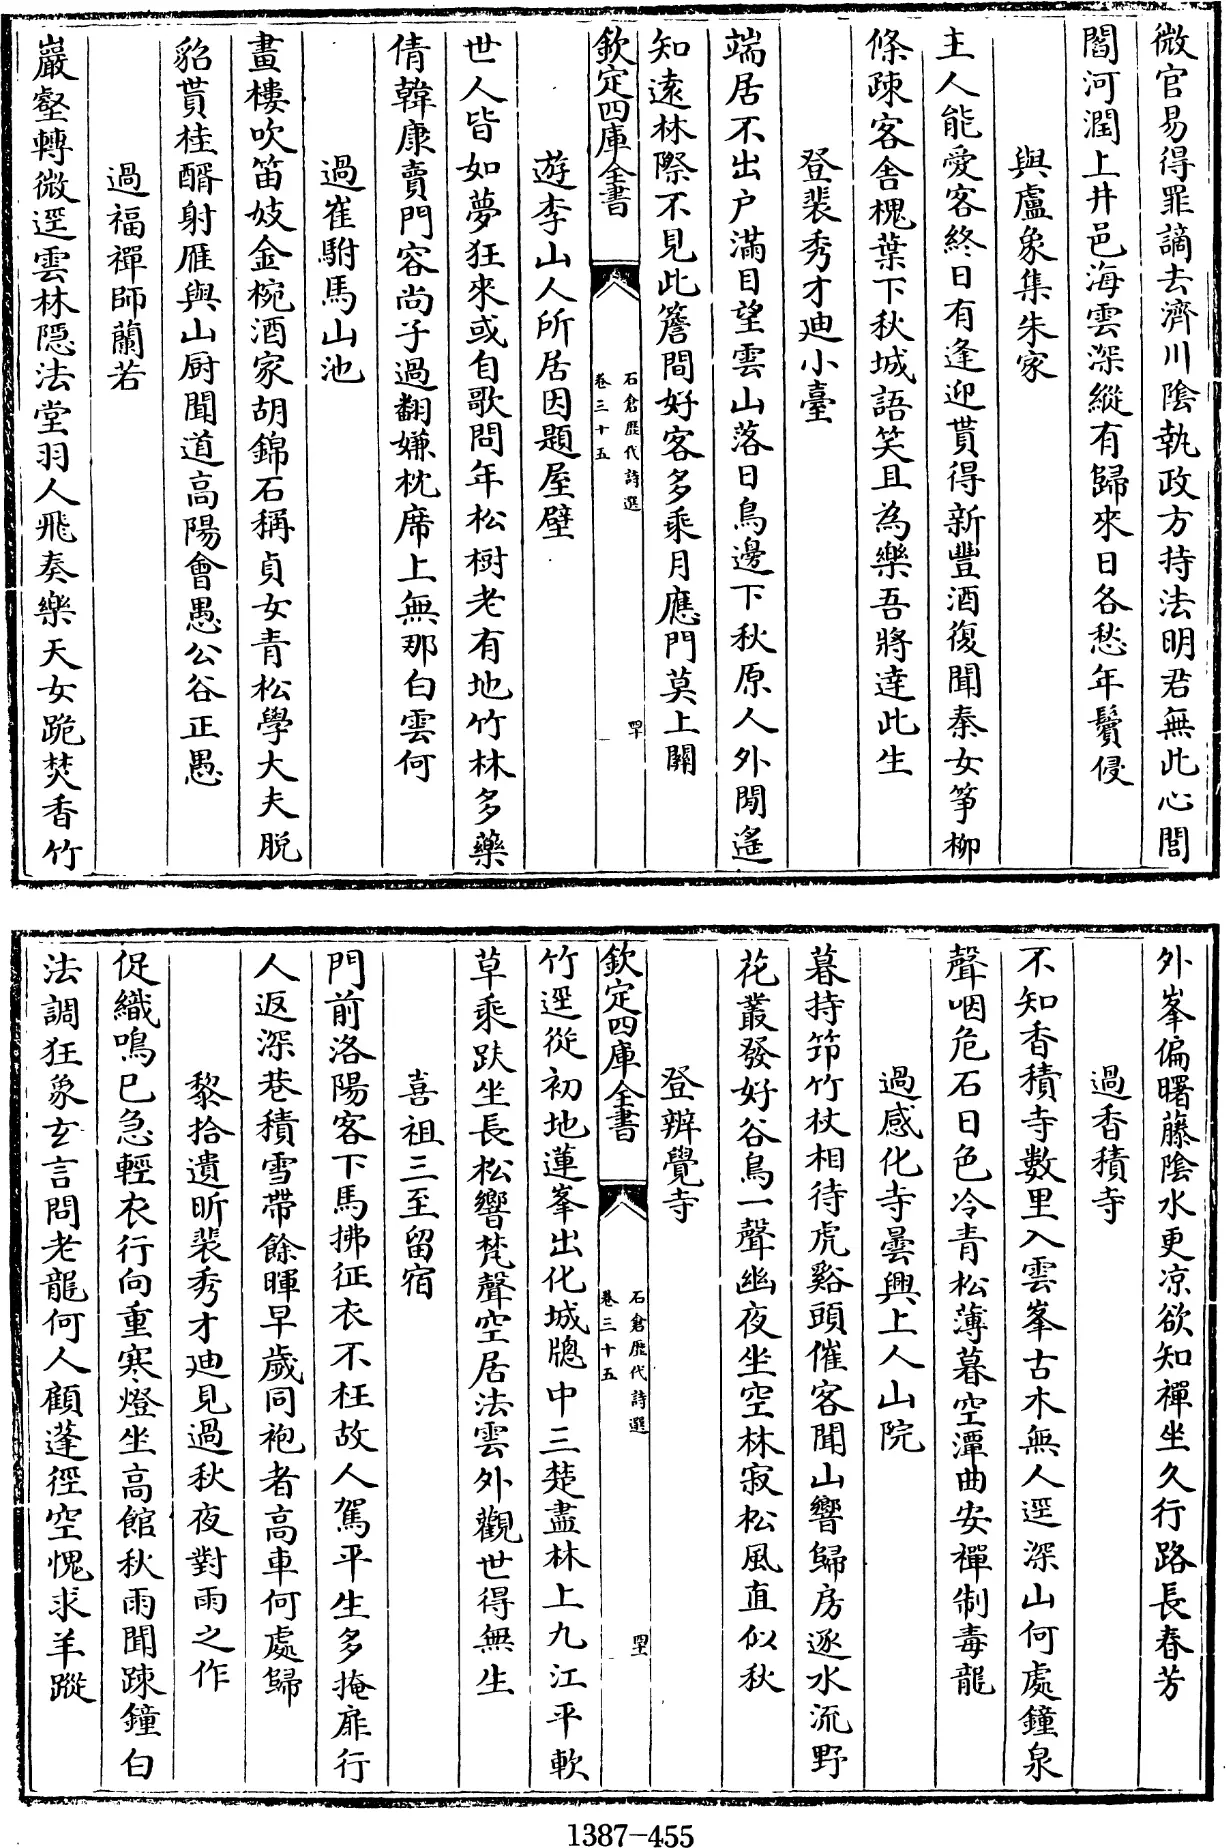 微官易得罪謫去濟川陰執政方持法明君無此心閭
閻河潤上井邑海雲深縱有歸來日各愁年鬢侵
與盧象集朱家
主人能愛客終日有逢迎貰得新豐酒復聞秦女箏柳
條疎客舍槐葉下秋城語笑且為樂吾將達此生
登裴秀才迪小臺
端居不出户滿目望雲山落日鳥邊下秋原人外閒遙
知遠林際不見此簷間好客多乘月應門莫上關
欽定四庫全書
石倉歷代詩選
卷三十五
四十
遊李山人所居因題屋壁
世人皆如夢狂來或自歌問年松樹老有地竹林多藥
倩韓康賣門容尚子過翻嫌枕席上無那白雲何
過崔駙馬山池
畫樓吹笛妓金椀酒家胡錦石稱貞女青松學大夫脱
貂貰桂醑射雁與山厨聞道高陽會愚公谷正愚
過福禪師蘭若
巖壑轉微逕雲林隠法堂羽人飛奏樂天女跪焚香竹
外峯偏曙藤陰水更凉欲知禪坐久行路長春芳
過香積寺
不知香積寺數里入雲峯古木無人逕深山何處鐘泉
聲咽危石日色冷青松薄暮空潭曲安禪制毒龍
過感化寺曇興上人山院
暮持筇竹杖相待虎谿頭催客聞山響歸房逐水流野
花叢發好谷鳥一聲幽夜坐空林寂松風直似秋
登辨覺寺
欽定四庫全書
石倉歷代詩選
卷三十五
四十一
竹逕從初地蓮峯出化城牕中三楚盡林上九江平軟
草乘趺坐長松響梵聲空居法雲外觀世得無生
喜祖三至留宿
門前洛陽客下馬拂征衣不枉故人駕平生多掩扉行
人返深巷積雪帶餘暉早歲同袍者高車何處歸
黎拾遺昕裴秀才迪見過秋夜對雨之作
促織鳴已急輕衣行向重寒燈坐高館秋雨聞疎鐘白
法調狂象玄言問老龍何人顧蓬徑空愧求羊蹤
1387-455